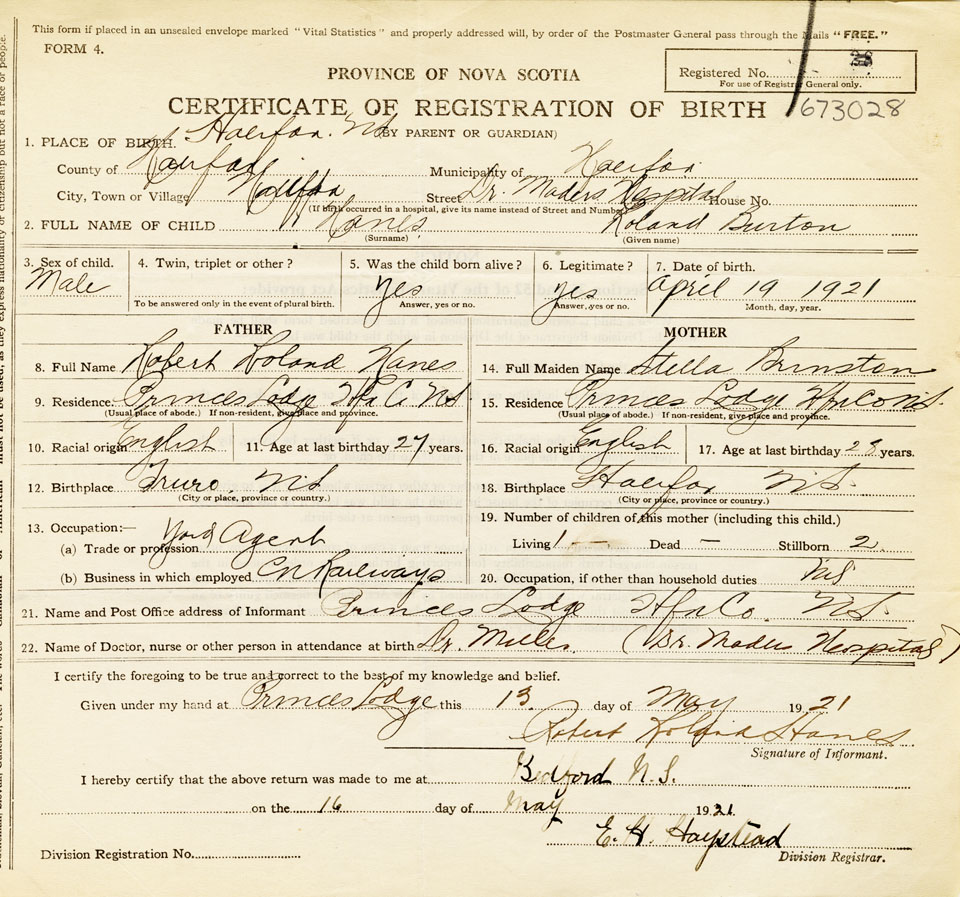 This form if placed in an unsealed envelope marked "Vital Statistics" and properly addressed will, by order of the Postmaster General pass through the Mails "FREE."
FORM 4.
Registered No.
For use of Registrar General only.
PROVINCE OF NOVA SCOTIA
CERTIFICATE OF REGISTRATION OF BIRTH 673028
(BY PARENT OR GUARDIAN)
1. PLACE OF BIRTH. Halifax. NS
County of Halifax Municipality of Halifax
City, Town or Village Halifax Street Dr. Maders Hospital House No.
(If birth occurred in a hospital, give its name instead of Street and Number)
2. FULL NAME OF CHILD Hanes Roland Burton
(Surname) (Given name)
3. Sex of child. 4. Twin, triplet or other? 5. Was the child born alive? 6. Legitimate? 7. Date of birth.
Male yes yes April 19 1921
To be answered only in the event of plural birth. Answer, yes or no. Answer, yes or no. Month, day, year.
FATHER MOTHER
8. Full Name Robert Roland Hanes 14. Full Maiden Name Stella Brinston
9. Residence. Princes Lodge Hfx Co NS 15. Residence Princes Lodge Hfx Co NS
(Usual place of abode.) If non-resident, give place and province. (Usual place of abode.) If non-resident, give place and province.
10. Racial origin English 11. Age at last birthday 27 years. 16. Racial origin English 17. Age at last birthday 23 years.
12. Birthplace Truro. NS 18. Birthplace Halifax NS.
(City or place, province or country.) (City or place, province or country.)
13. Occupation:— 19. Number of children of this mother (including this child.)
(a) Trade or profession Yard Agent Living 1 — Dead — Stillborn 2
(b) Business in which employed Cn Railways 20. Occupation, if other than household duties
21. Name and Post Office address of Informant Princes Lodge Hfx Co. NS.
22. Name of Doctor, nurse or other person in attendance at birth Dr. (Dr. Maders Hospital)
I certify the foregoing to be true and correct to the best of my knowledge and belief.
Given under my hand at Princes Lodge this 13 day of May 1921
Robert Roland Hanes
Signature of Informant.
I hereby certify that the above return was made to me at Bedford N.S.
on the 16 day of May 1921.
E. H. Haystead
Division Registration No. Division Registrar.